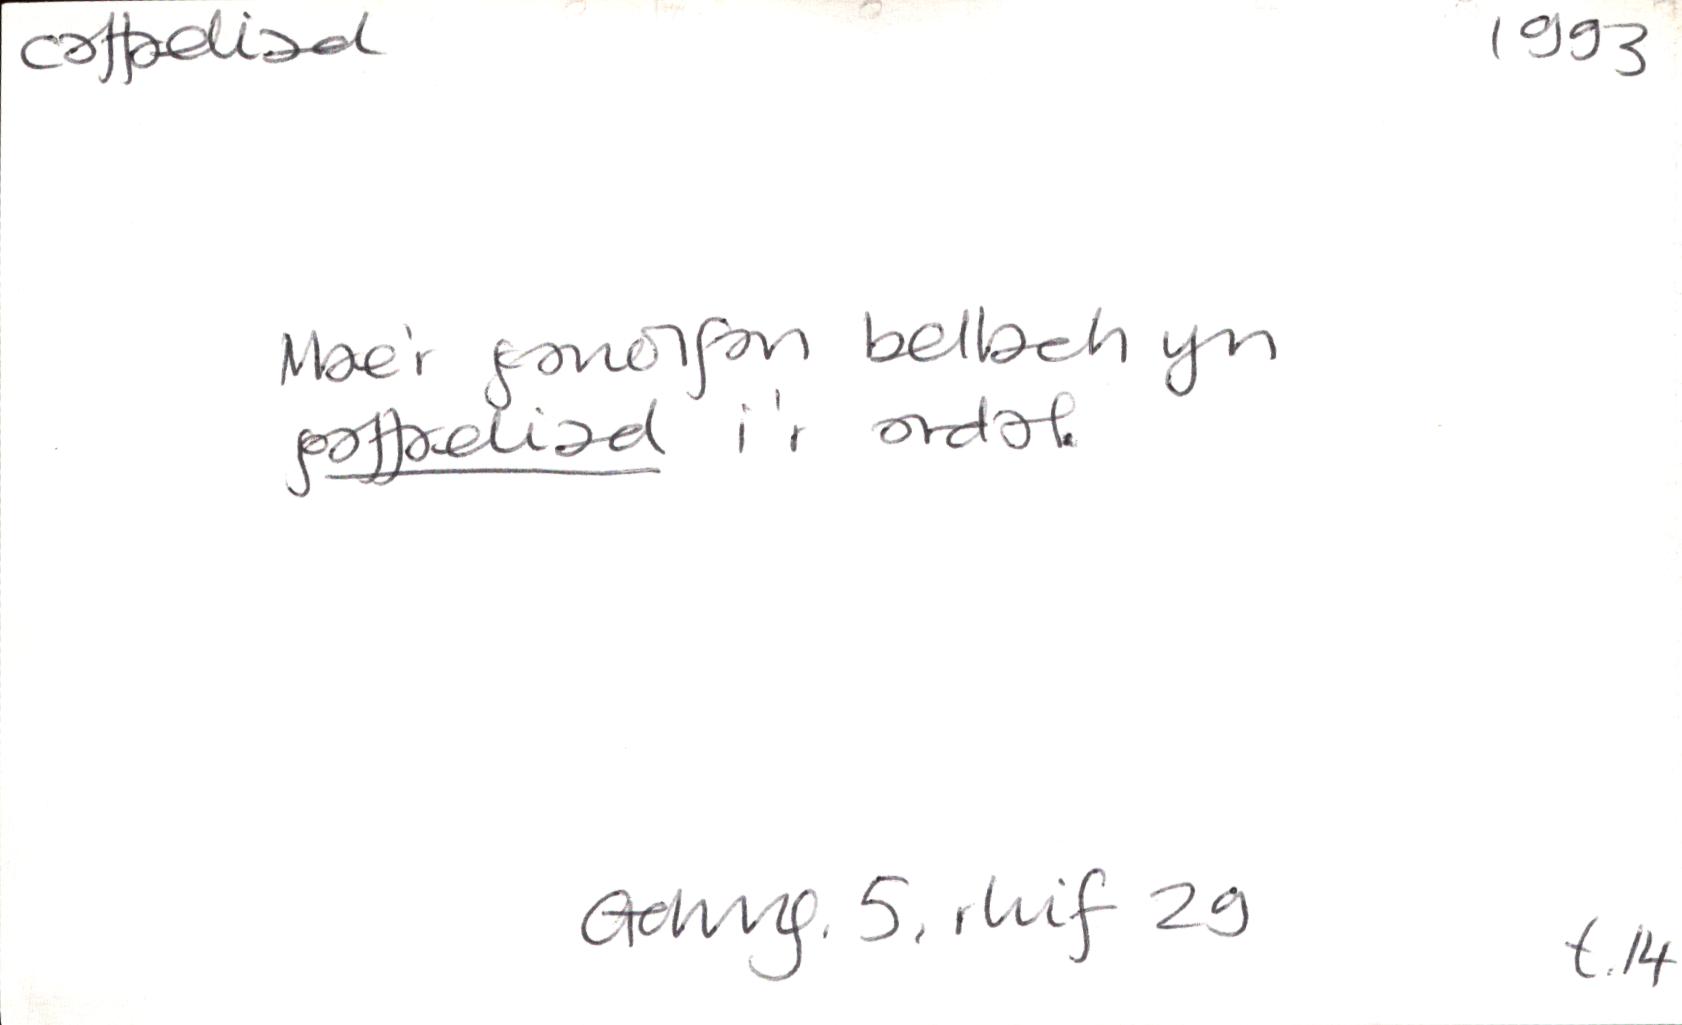 caffaeliad 1993
Mae'r ganolfan bellach yn
gaffaeliad i'r ardal.
Golwg. 5, rhif 29
t.14